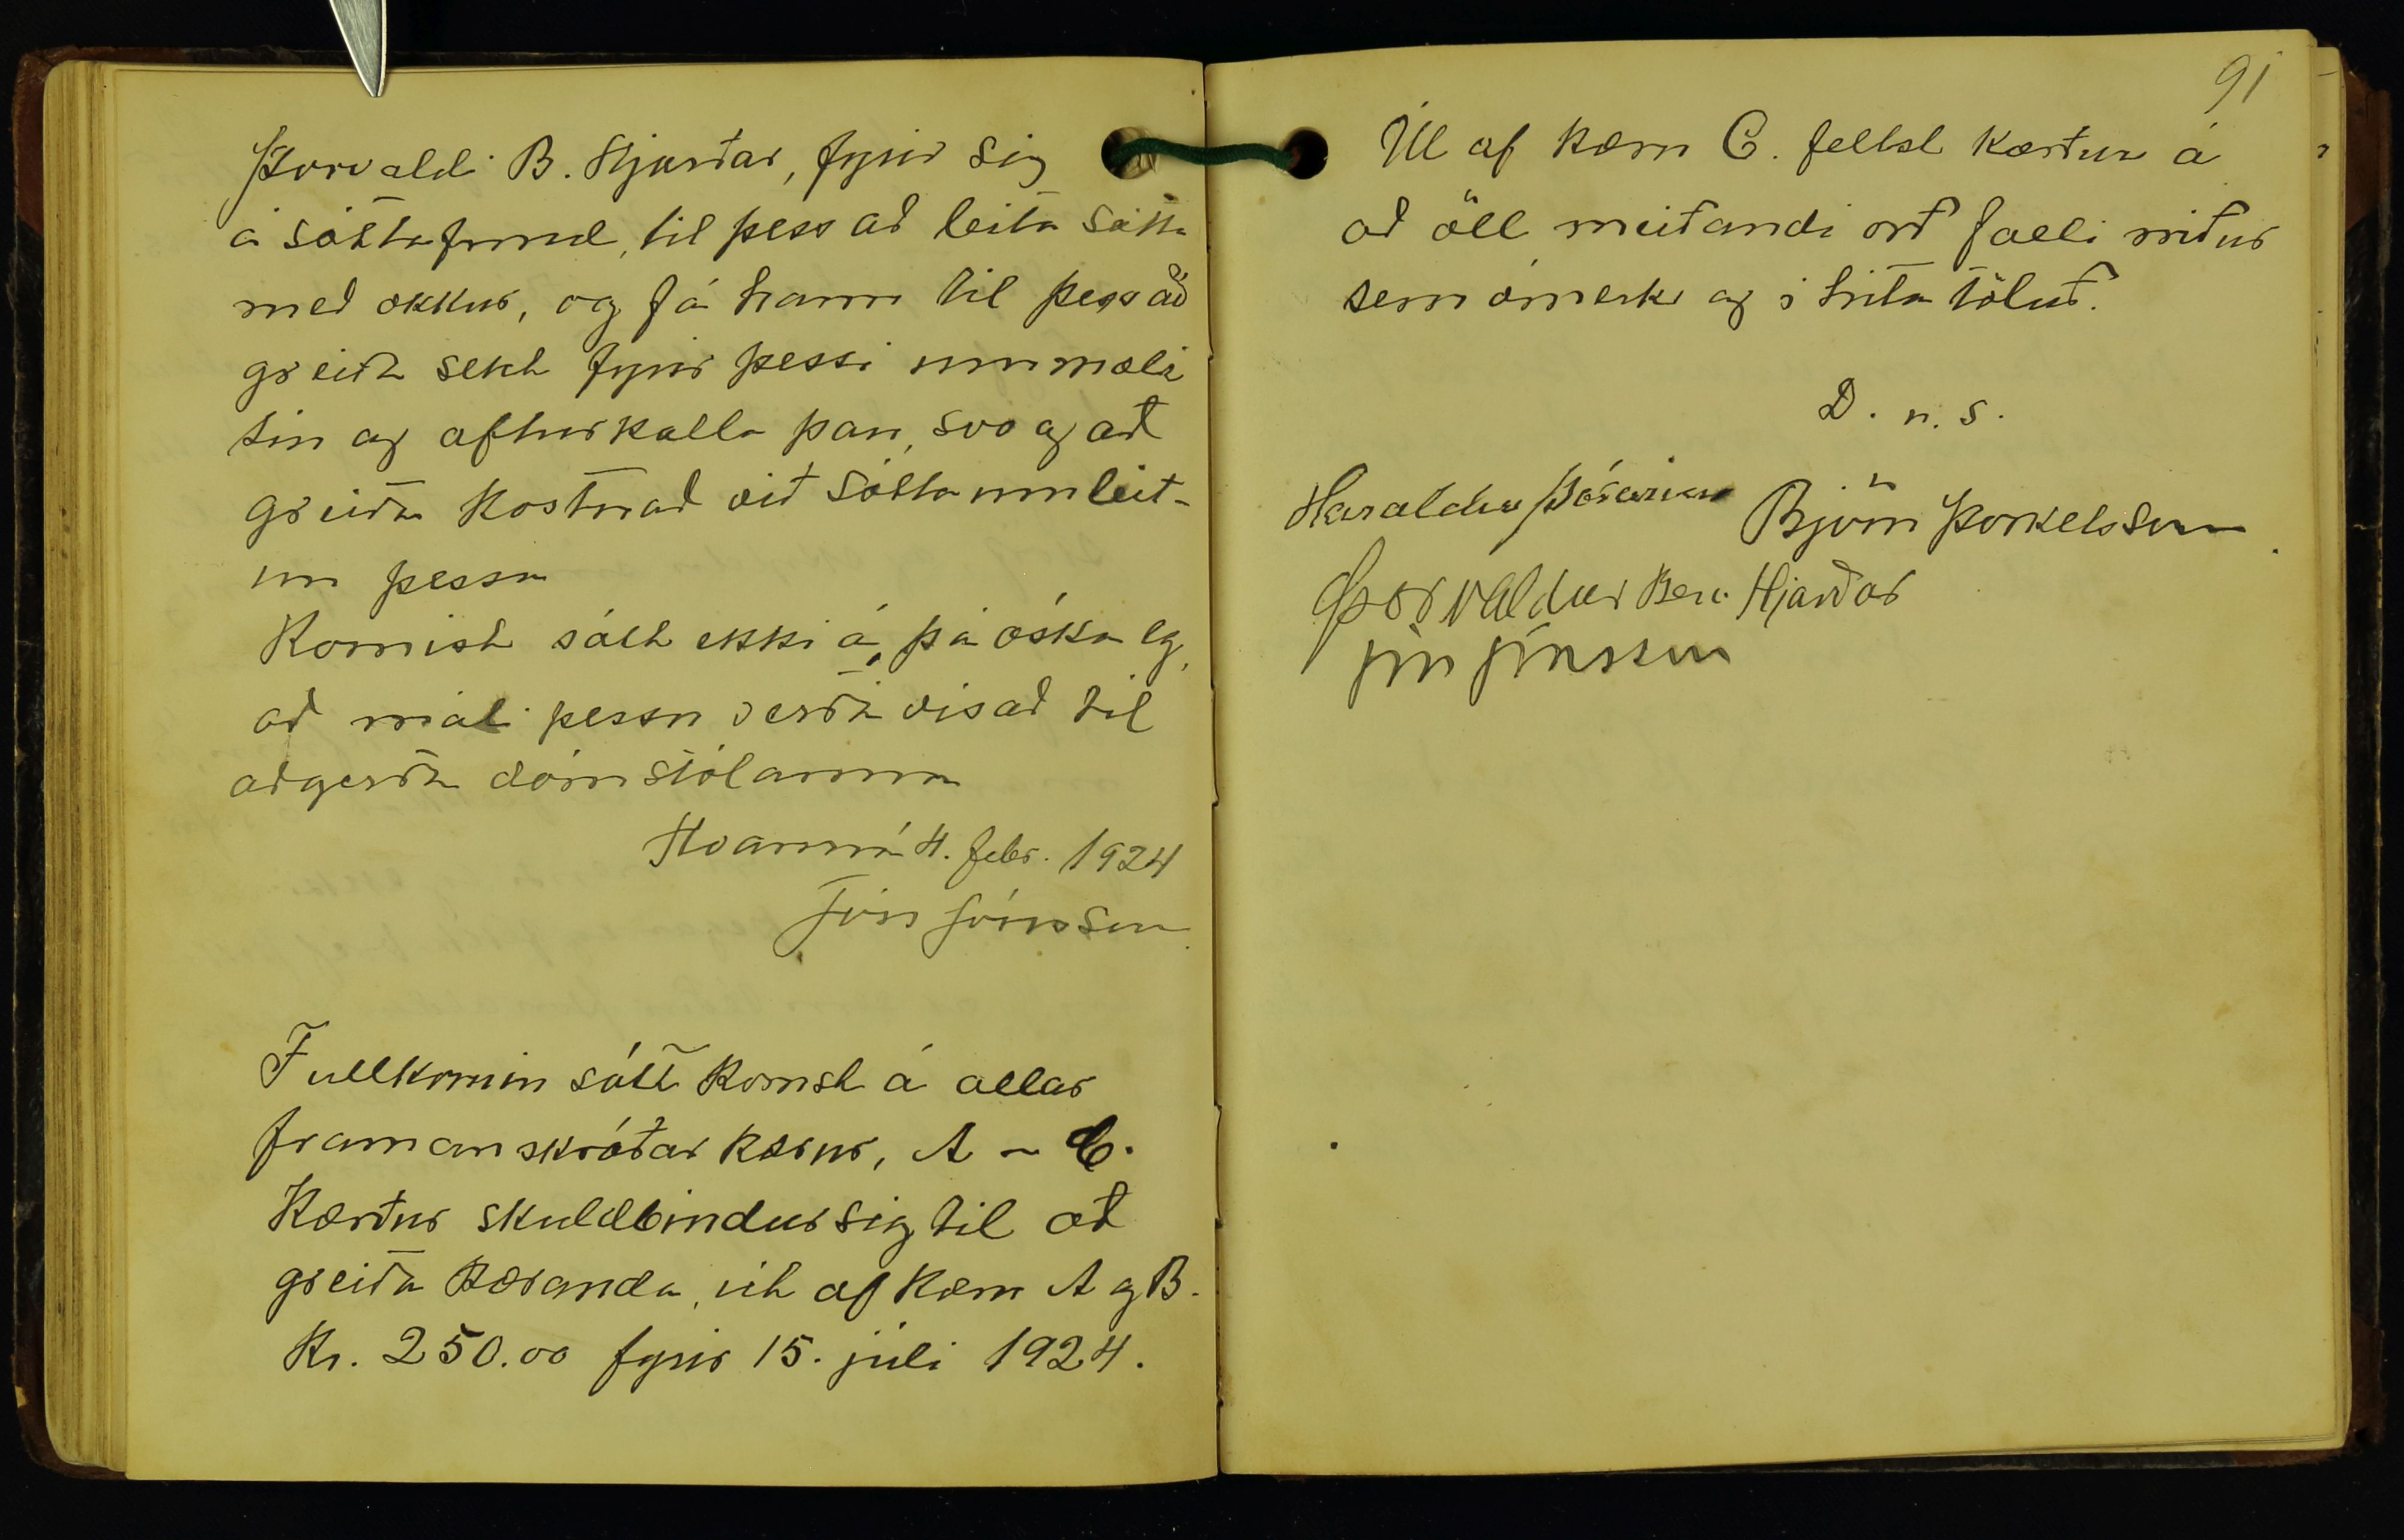 Þorvaldi B. Hjarðar, fyrir sig
á sáttafund, til þess að leita sátta
með okkur, og fá hann til þess að
greiða sekt fyrir þessi ummæli
sín og afturkalla þau, svo og að
greiða kostnað við sáttaumleit-
un þessa
Komist sátt ekki á, þá óska eg,
að máli þessu verði vísað til
aðgerða dómstólanna
Hvanná 4. febr. 1924
Jón Jónsson
Fullkomin sátt komst á allar
framanskráðar kærur, A - C.
Kærður skuldbindur sig til að
greiða kæranda, út af kæru A og B.
Kr. 250.00 fyrir 15. júli 1924.
91
Út af kæru C. fellst kærður á
að öll meiðandi orð falli niður
sem ómerk og óhrita töluð.
D. u. s.
Haraldur Þórarinss
Björn Þorkelsson
Þorvaldur Ben. Hjarðar
Jón Jónsson